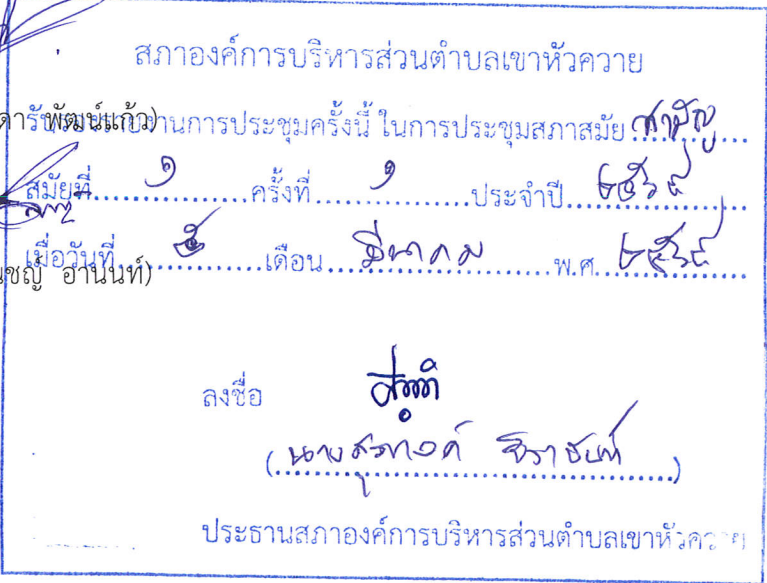 สภาองค์การบริหารส่วนตำบลเขาหัวควาย
ดา พัฒน์แก้ว)
รับรองรายงานการประชุมครั้งนี้ ในการประชุมสภาสมัย สามัญ
สมัยที่ ๑ ครั้งที่ ๑ ประจำปี ๒๕๖๘
เมื่อวันที่ ๕ เดือน มีนาคม พ.ศ. ๒๕๖๘
ชญ์ อานนท์)
ลงชื่อ
(นายสุภางค์)
ประธานสภาองค์การบริหารส่วนตำบลเขาหัวควาย